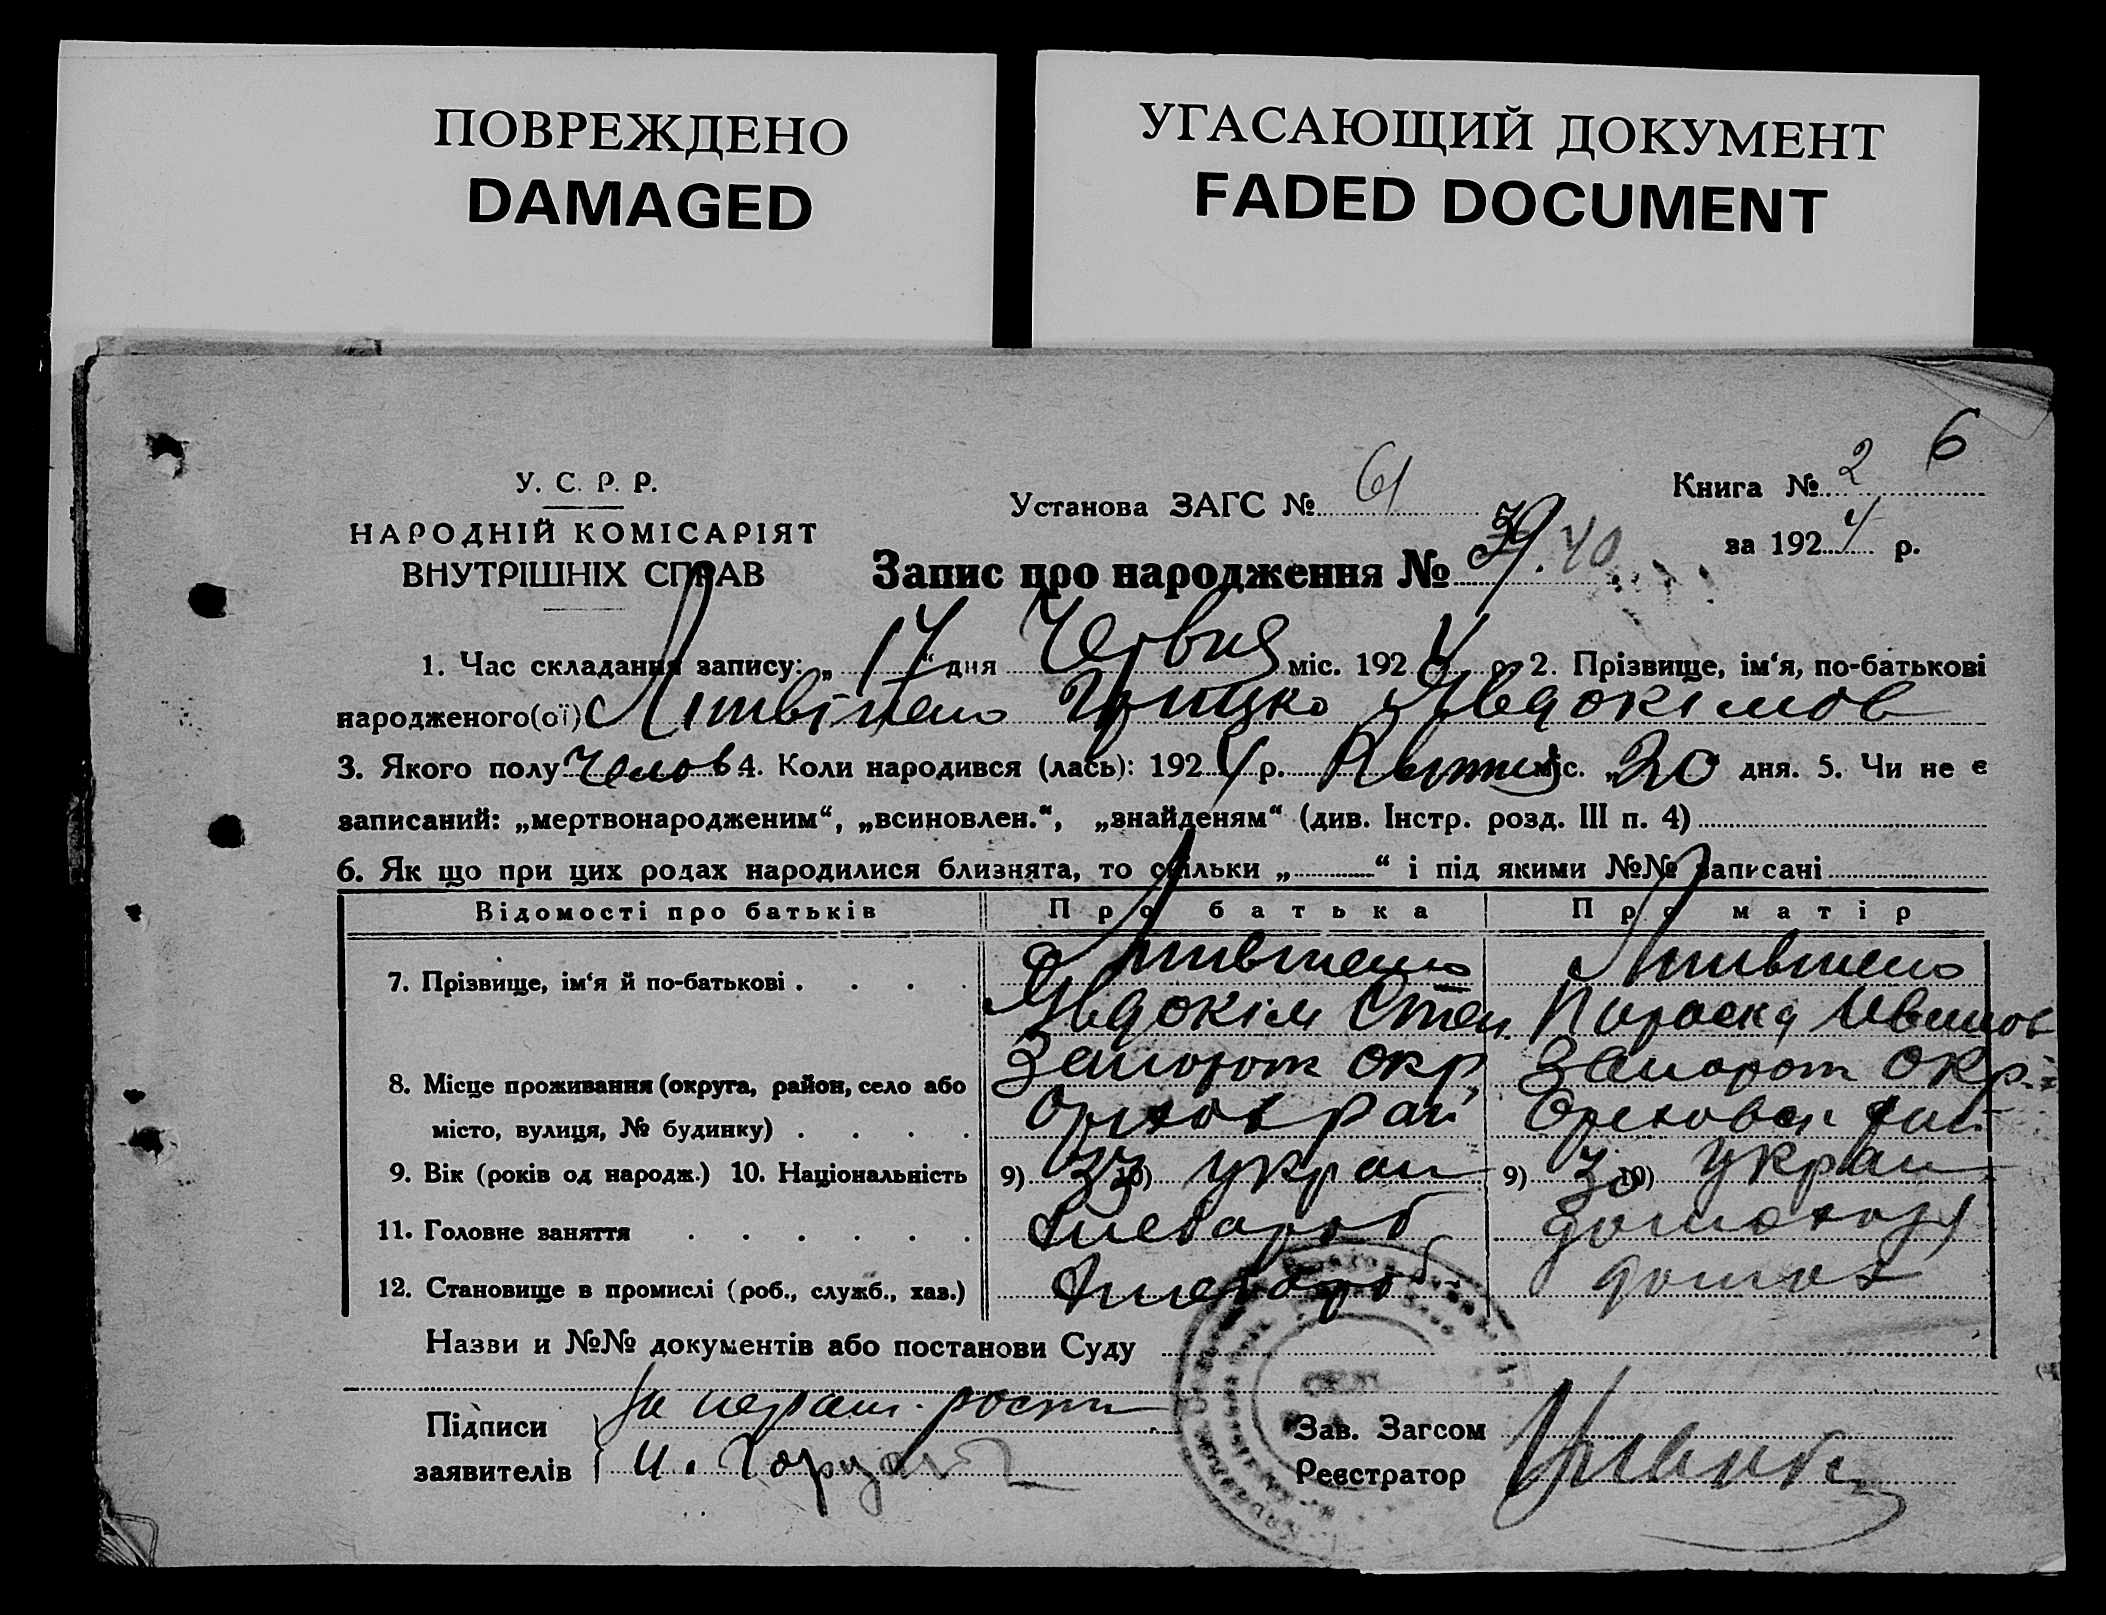 ПОВРЕЖДЕНО
DAMAGED
УГАСАЮЩИЙ ДОКУМЕНТ
FADED DOCUMENT
6
У. С. Р. Р.
НАРОДНІЙ КОМІСАРІЯТ
ВНУТРІШНІХ СПРАВ
Установа ЗАГС № 61
Книга № 2
за 1924 р.
Запис про народження № 39. 40
1. Час складання запису: „17“ дня Червня міс. 1924 р. 2. Прізвище, ім‘я, по-батькові
народженого(ої) Літвіненко Грицко Явдокімов
3. Якого полу Челов 4. Коли народився (лась): 1924 р. Квітня міс. „20 дня. 5. Чи не є
записаний: „мертвонародженим“, „всиновлен.“, „знайденям“ (див. Інстр. розд. III п. 4)
6. Як що при цих родах народилися близнята, то скільки „ “ і під якими №№ записані
Відомості про батьків Про батька Про матір
7. Прізвище, ім‘я й по-батькові
Явдокім Степ. Параска Иванов
8. Місце проживання (округа, район, село або
місто, вулиця, № будинку)
Запорож окр. Запорож окр.
Орехов рай Ореховск рай.
9. Вік (років од народж.) 10. Національність 9) 33 10) украи 9) 30 10) украи
11. Головне заняття Хлебороб домохоз
12. Становище в промислі (роб., служб., хаз.) Хлебороб домох
Назви и №№ документів або постанови Суду
Підписи
заявителів
За неграм. рости
И.
Зав. Загсом
Реєстратор